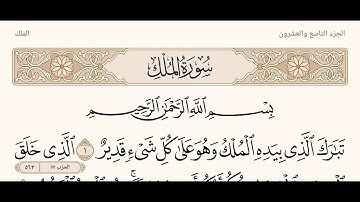 الجزء التاسع والعشرون
الملك
سُورَةُ الْمُلْكِ
بِسْمِ اللَّهِ الرَّحْمَٰنِ الرَّحِيمِ
تَبَٰرَكَ ٱلَّذِي بِيَدِهِ ٱلْمُلْكُ وَهُوَ عَلَىٰ كُلِّ شَيْءٍ قَدِيرٌ ١ ٱلَّذِي خَلَقَ
الحزب ٥٧
٥٦٢